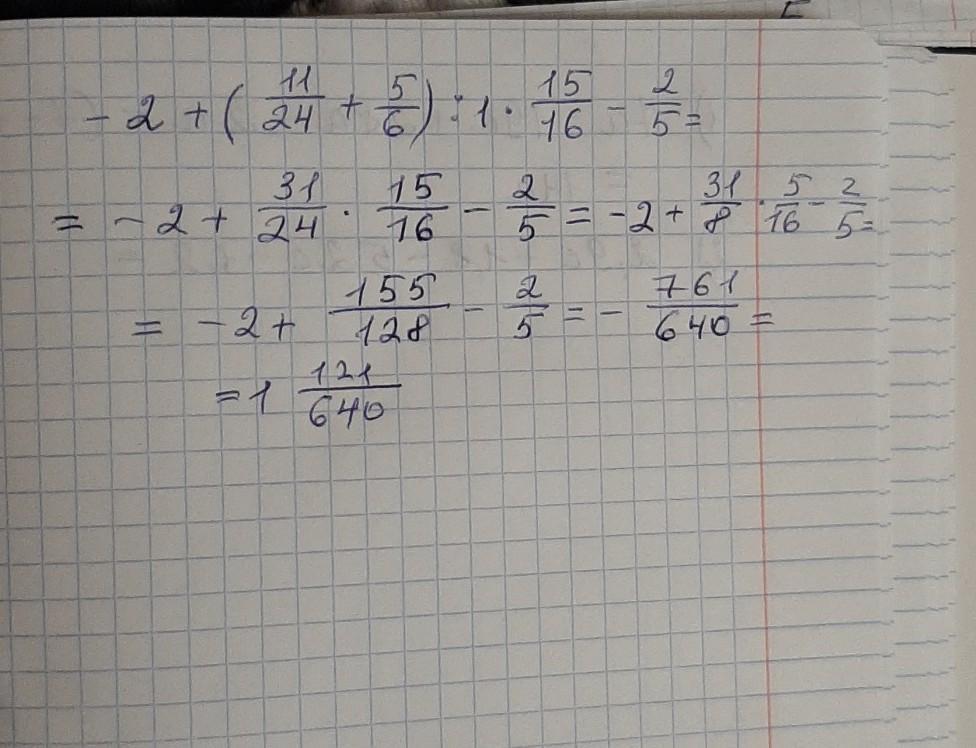 - 2 + ( 11/24 + 5/6 ) : 1 · 15/16 - 2/5 =
= - 2 + 31/24 · 15/16 - 2/5 = - 2 + 31/8 · 5/16 - 2/5 =
= - 2 + 155/128 - 2/5 = - 761/640 =
= 1 121/640